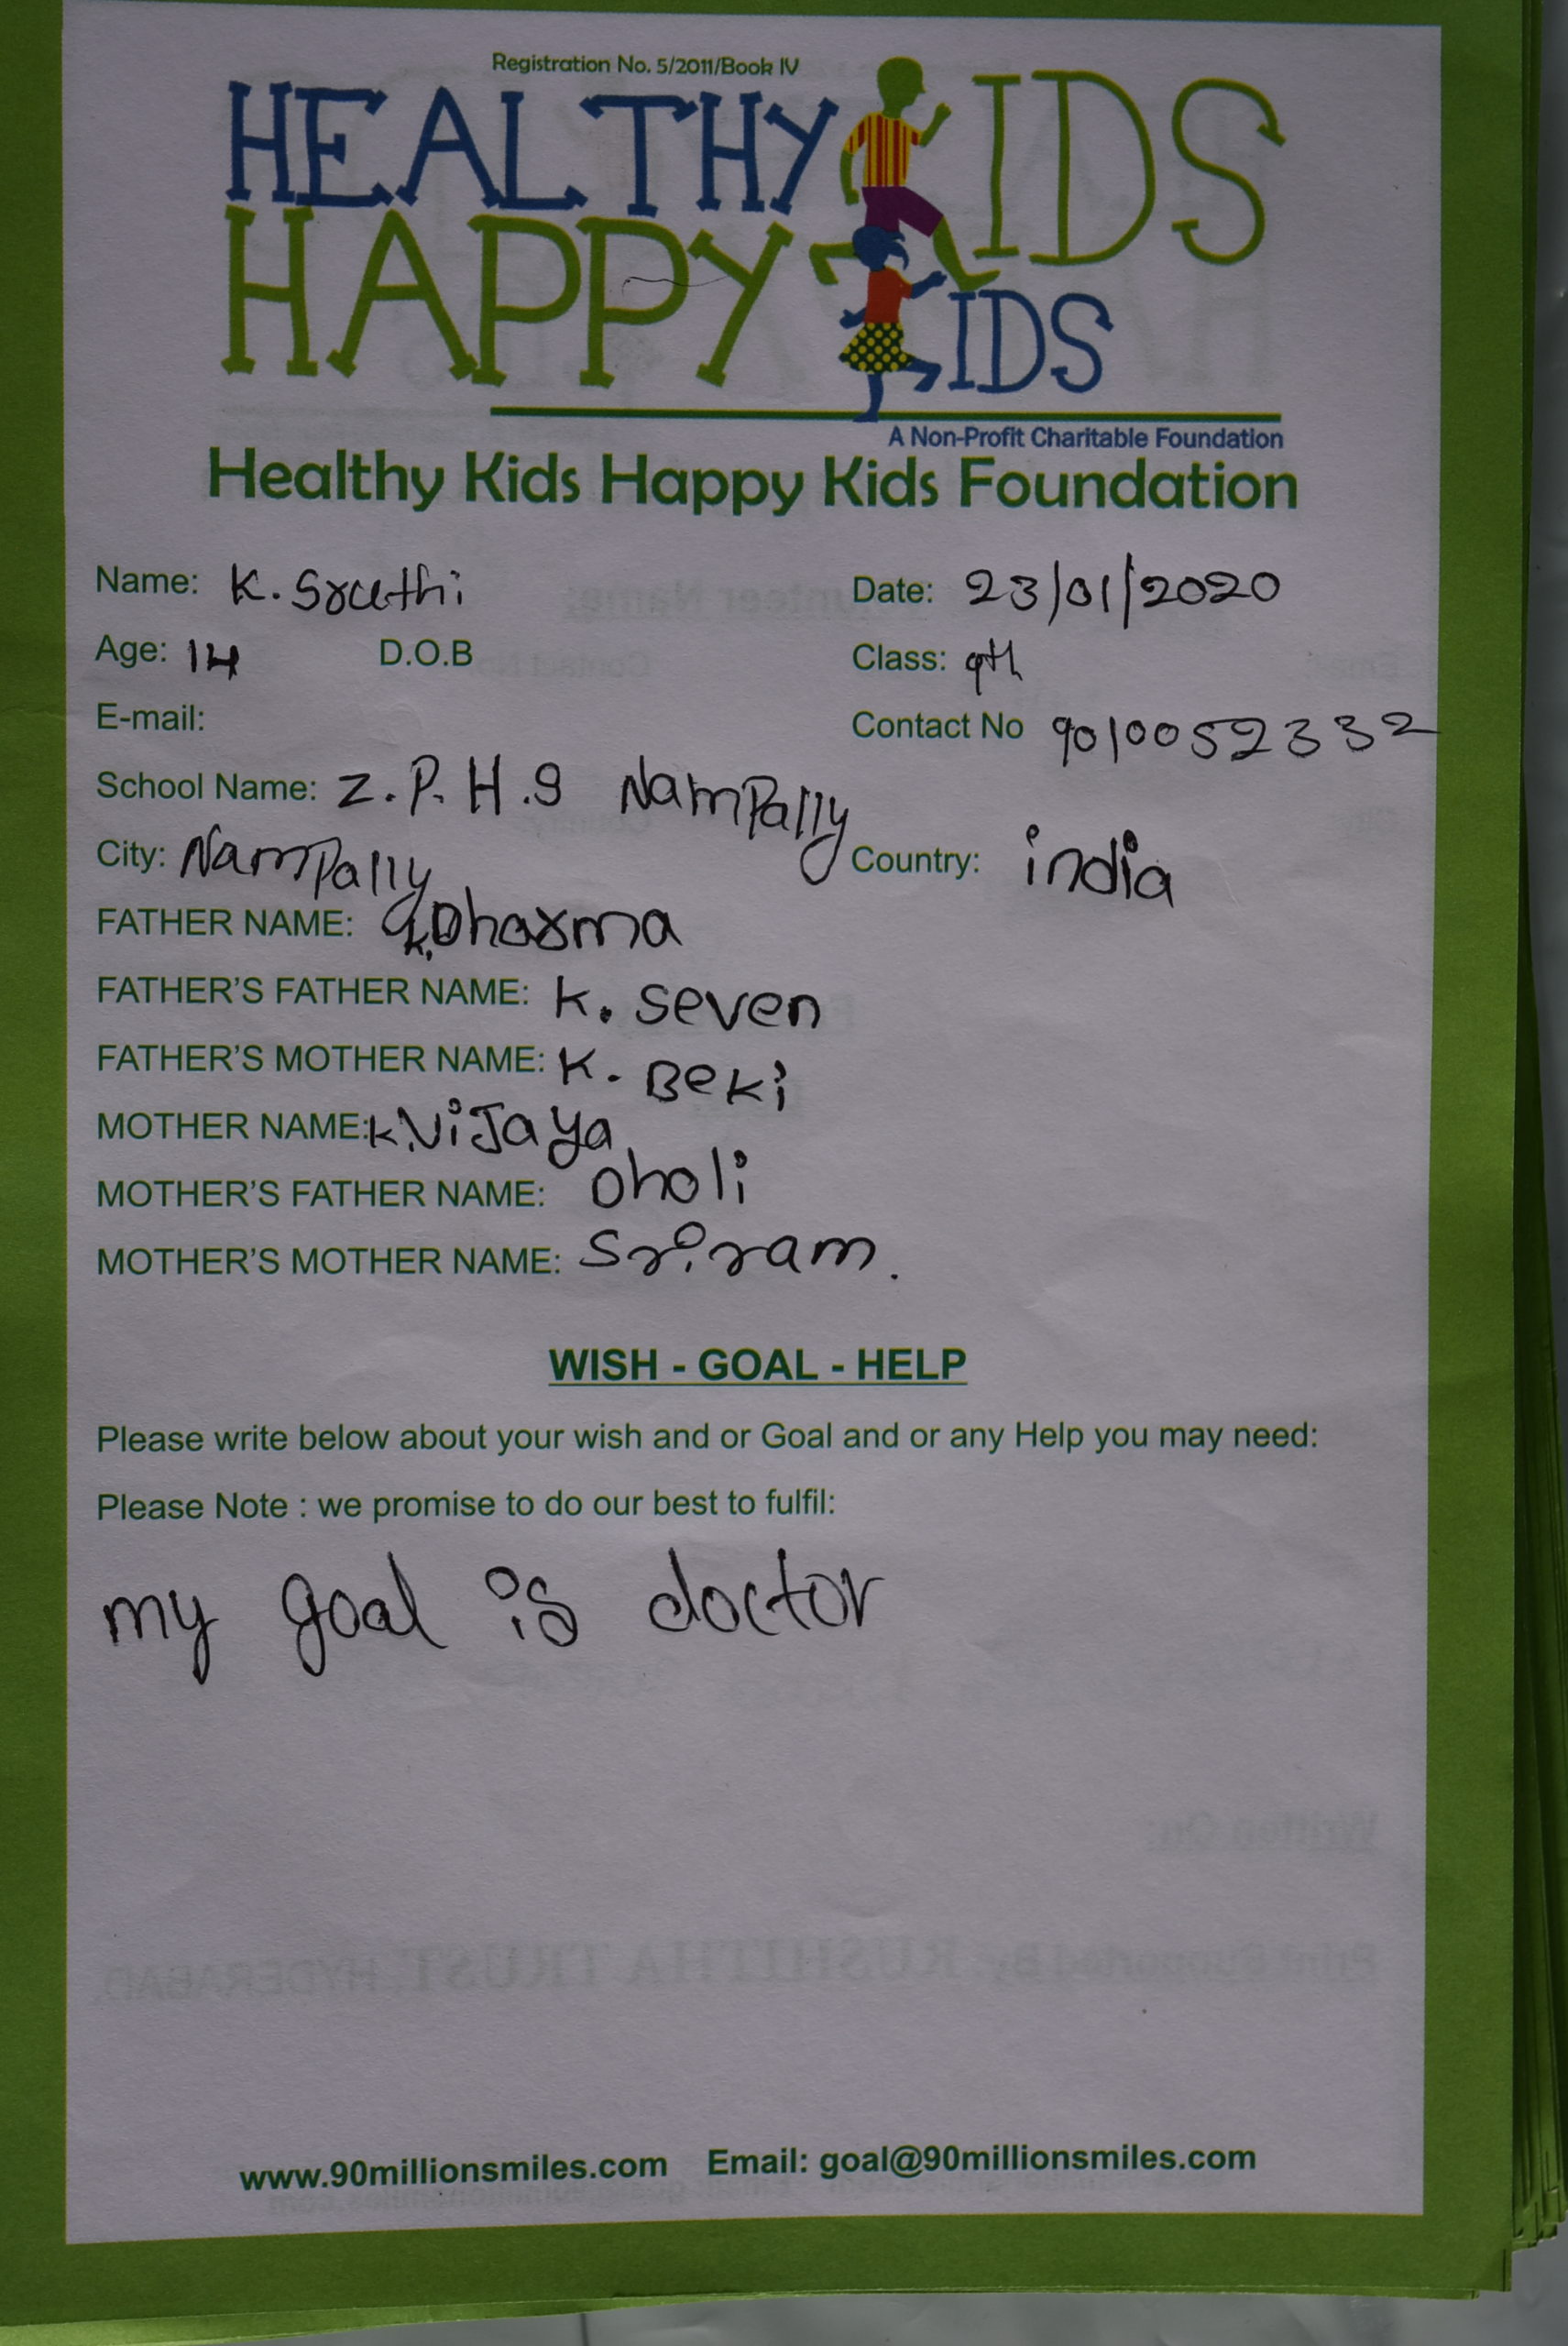 Registration No. 5/2011/Book IV
HEALTHY KIDS
HAPPY KIDS
A Non-Profit Charitable Foundation
Healthy Kids Happy Kids Foundation
Name: K. Sruthi Date: 23/01/2020
Age: 14 D.O.B Class: 9th
E-mail: Contact No 9010052332
School Name: Z.P.H.S Nampally
City: Nampally Country: india
FATHER NAME: K.Dharma
FATHER'S FATHER NAME: K. Seven
FATHER'S MOTHER NAME: K. Beki
MOTHER NAME: K.Vijaya
MOTHER'S FATHER NAME: Dholi
MOTHER'S MOTHER NAME: Sriram.
WISH - GOAL - HELP
Please write below about your wish and or Goal and or any Help you may need:
Please Note : we promise to do our best to fulfil:
my goal is doctor
www.90millionsmiles.com Email: goal@90millionsmiles.com